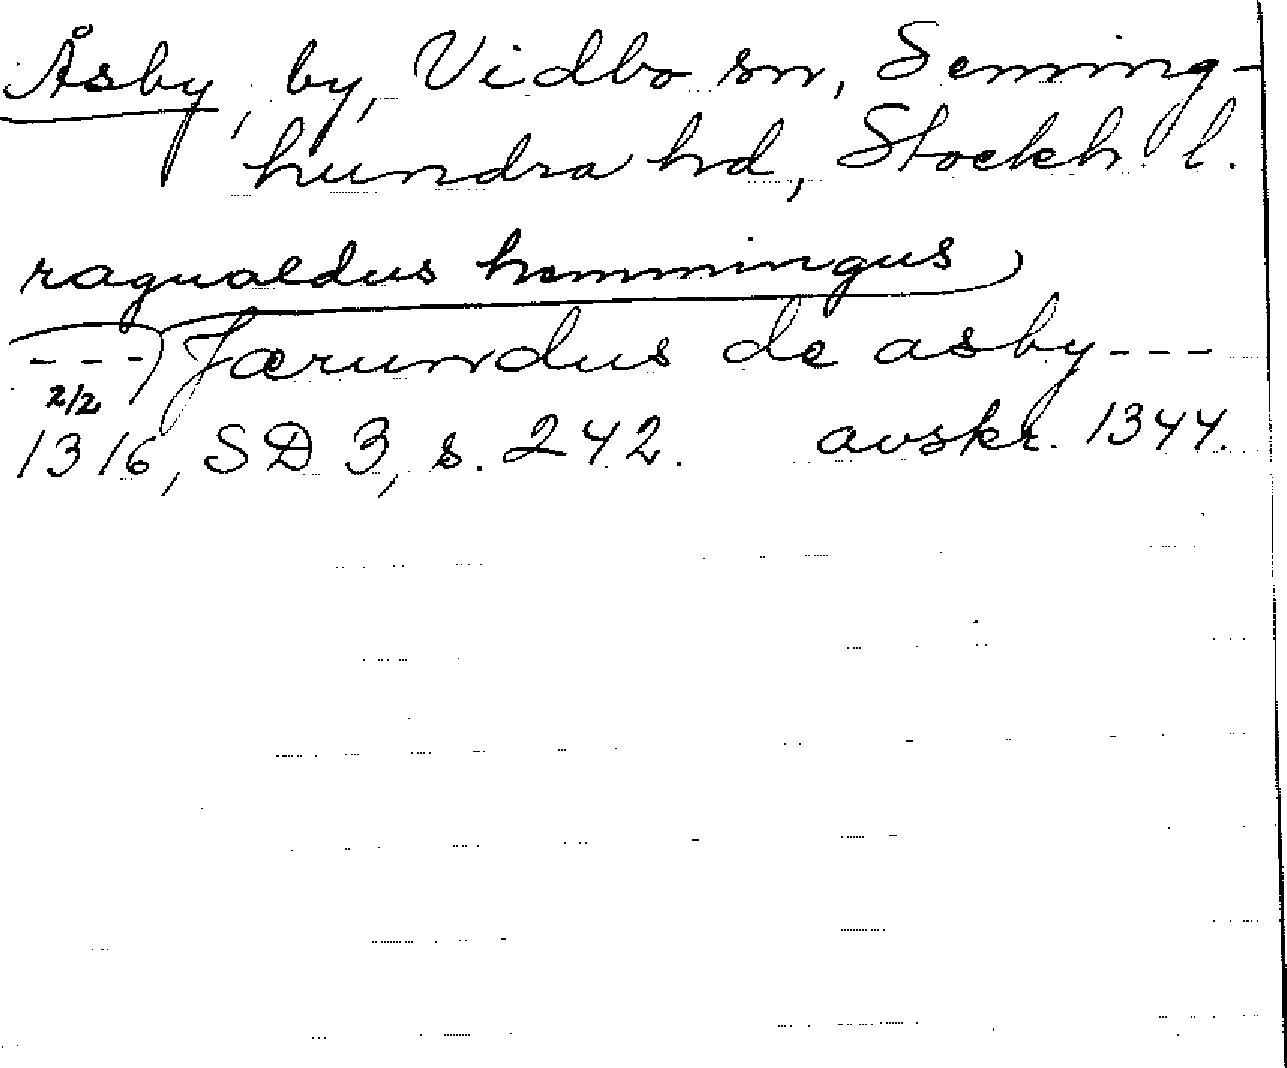 Åsby, by, Vidbo sn, Seming-
hundra hd, Stockh. l.
ragualdus hemmingus
--- Jærundus de asby ---
2/2
1316, SD 3, s. 242. avskr. 1344.